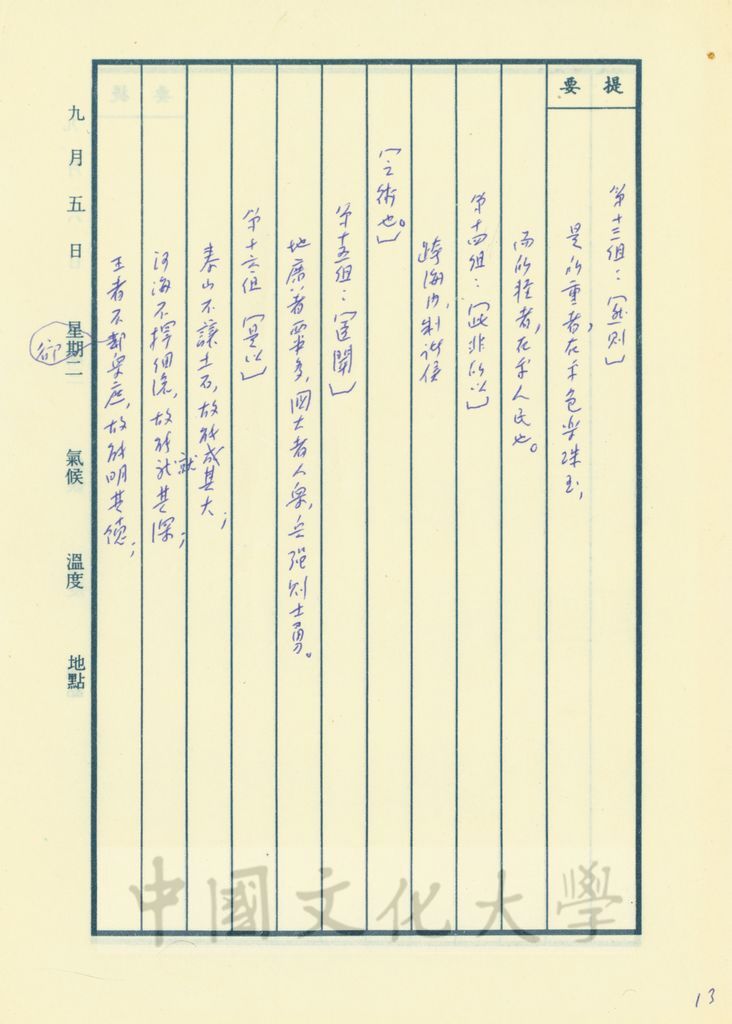 提要
第十三組：〔然則〕
是所重者，在乎色樂珠玉，
而所輕者，在乎人民也。
第十四組：〔此非所以〕
跨海內，制諸侯
〔之術也。〕
第十五組：〔臣聞〕
地廣者粟多，國大者人衆，兵强則士勇。
第十六組〔是以〕
泰山不讓土石，故能成其大；
河海不擇細流，故能就其深；
就
王者不却衆庶，故能明其德；
卻
九月五日 星期二 氣候 溫度 地點
中國文化大學
13